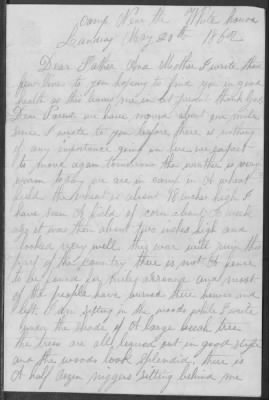 Camp Near the White house
Landing May 20th 1862
Dear Father And Mother I write these
few lines to you hopeing to find you in good
health as this leaves me in at present thank God
Dear Parents we have moved about one mile
since I wrote to you before there is nothing
of any importance going on here we expect
to move again tomorrow the weather is very
warm today we are in camp in A wheat
field the wheat is about 18 inches high I
have seen A field of corn about A week
ago it was then about five inches high and
looked very well this war will ruin this
part of the country there is not A fence
to be found for miles around and most
of the people have burned their houses and
left I am sitting in the woods while I write
under the shade of A large beech tree
the trees are all leaved out in good style
and the woods look splendid there is
A half dozen niggers sitting behind me